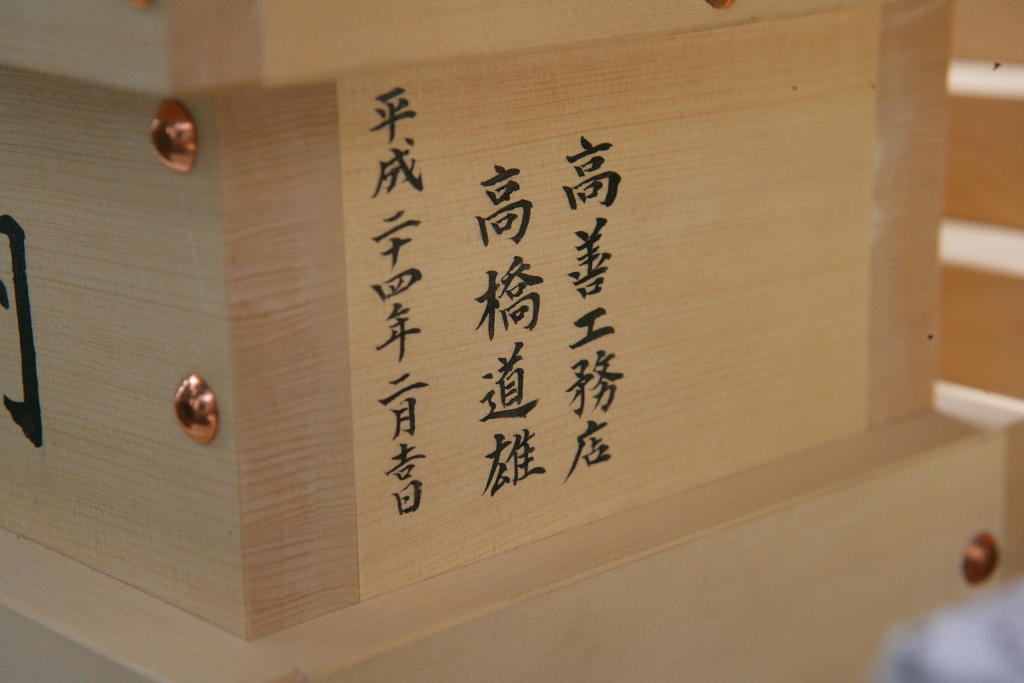 高善工務店
高橋道雄
平成二十四年二月吉日